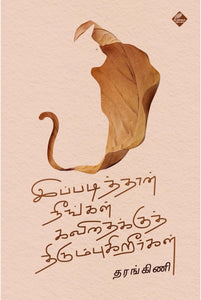 இப்படித்தான்
நீங்கள்
கவிதைக்குத்
திரும்புகிறீர்கள்
தரங்கிணி